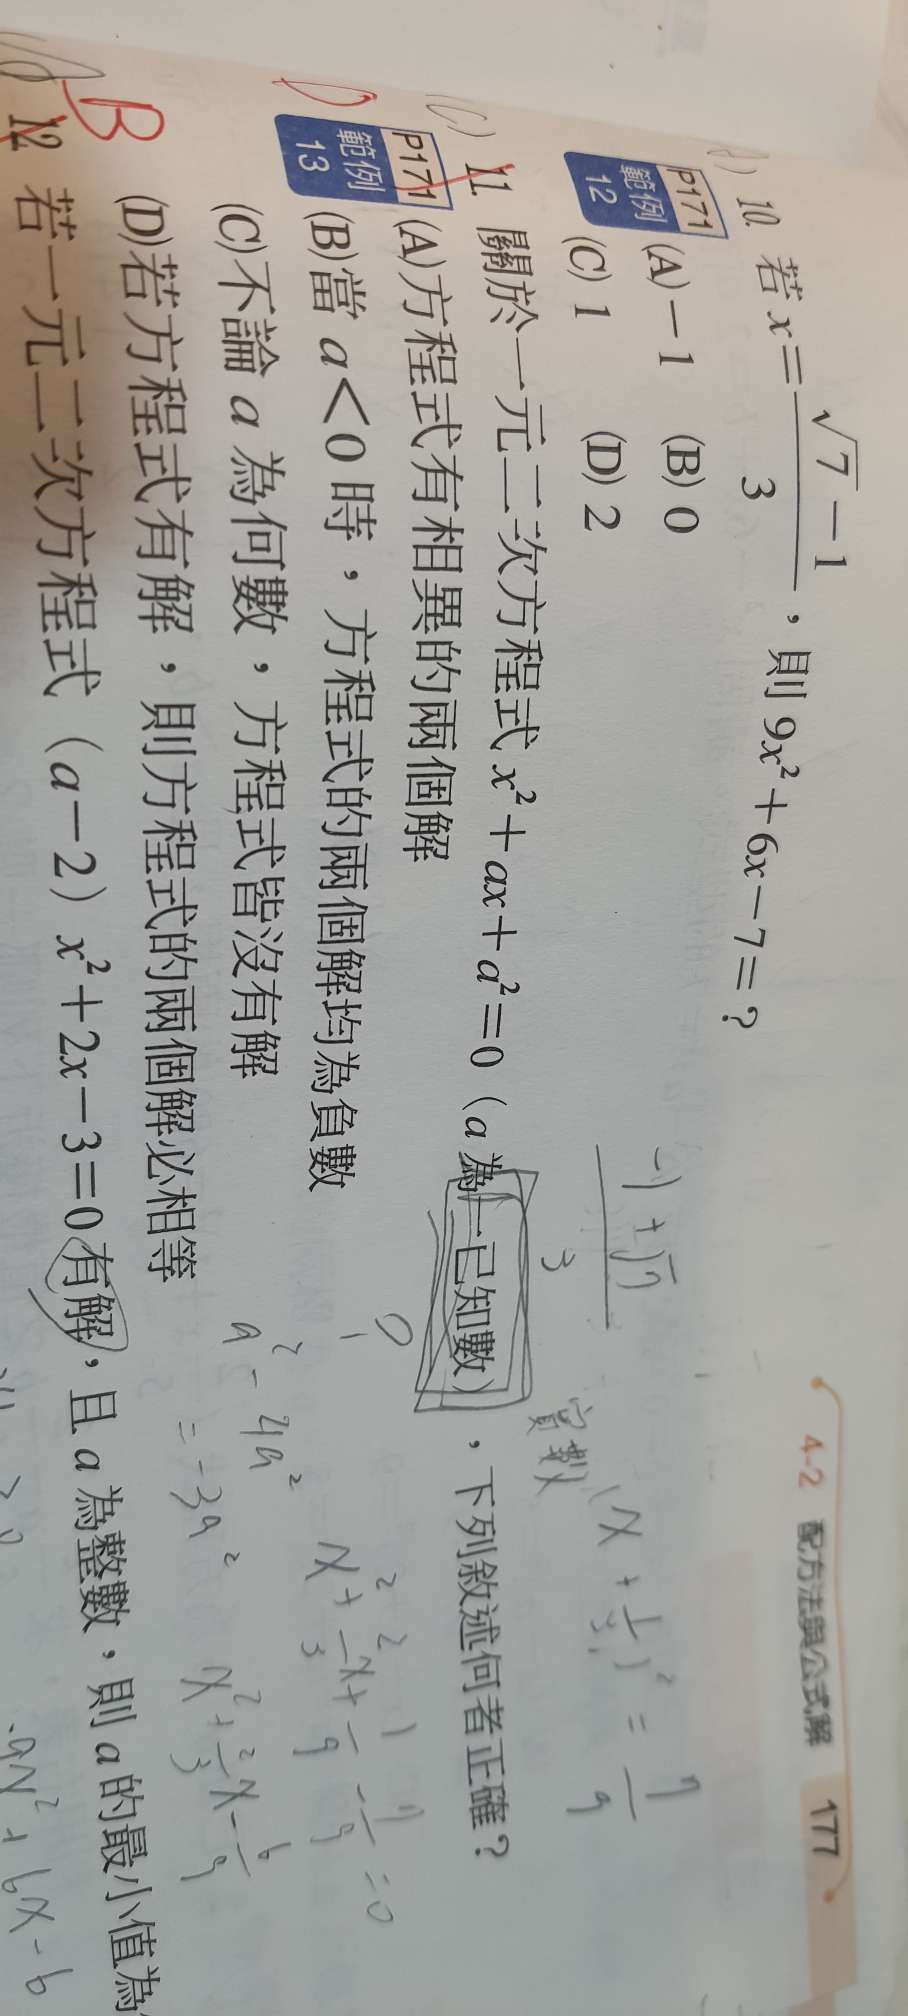 4-2 配方法與公式解 177
10 若 x=(√7-1)/3,則 9x²+6x-7=?
P171 範例 12
(A)-1 (B)0
(C)1 (D)2
(C) 11 關於一元二次方程式 x²+ax+a²=0(a 為一已知數),下列敘述何者正確?
D
P171 範例 13
(A)方程式有相異的兩個解
(B)當 a<0 時,方程式的兩個解均為負數
(C)不論 a 為何數,方程式皆沒有解
(D)若方程式有解,則方程式的兩個解必相等
B
12 若一元二次方程式(a-2)x²+2x-3=0 有解,且 a 為整數,則 a 的最小值為
(-1+√7)/3
實數
(x+1/3)²=7/9
x²+2/3x+1/9-7/9=0
x²+2/3x-6/9
a²-4a²
=-3a²
9x²+6x-6